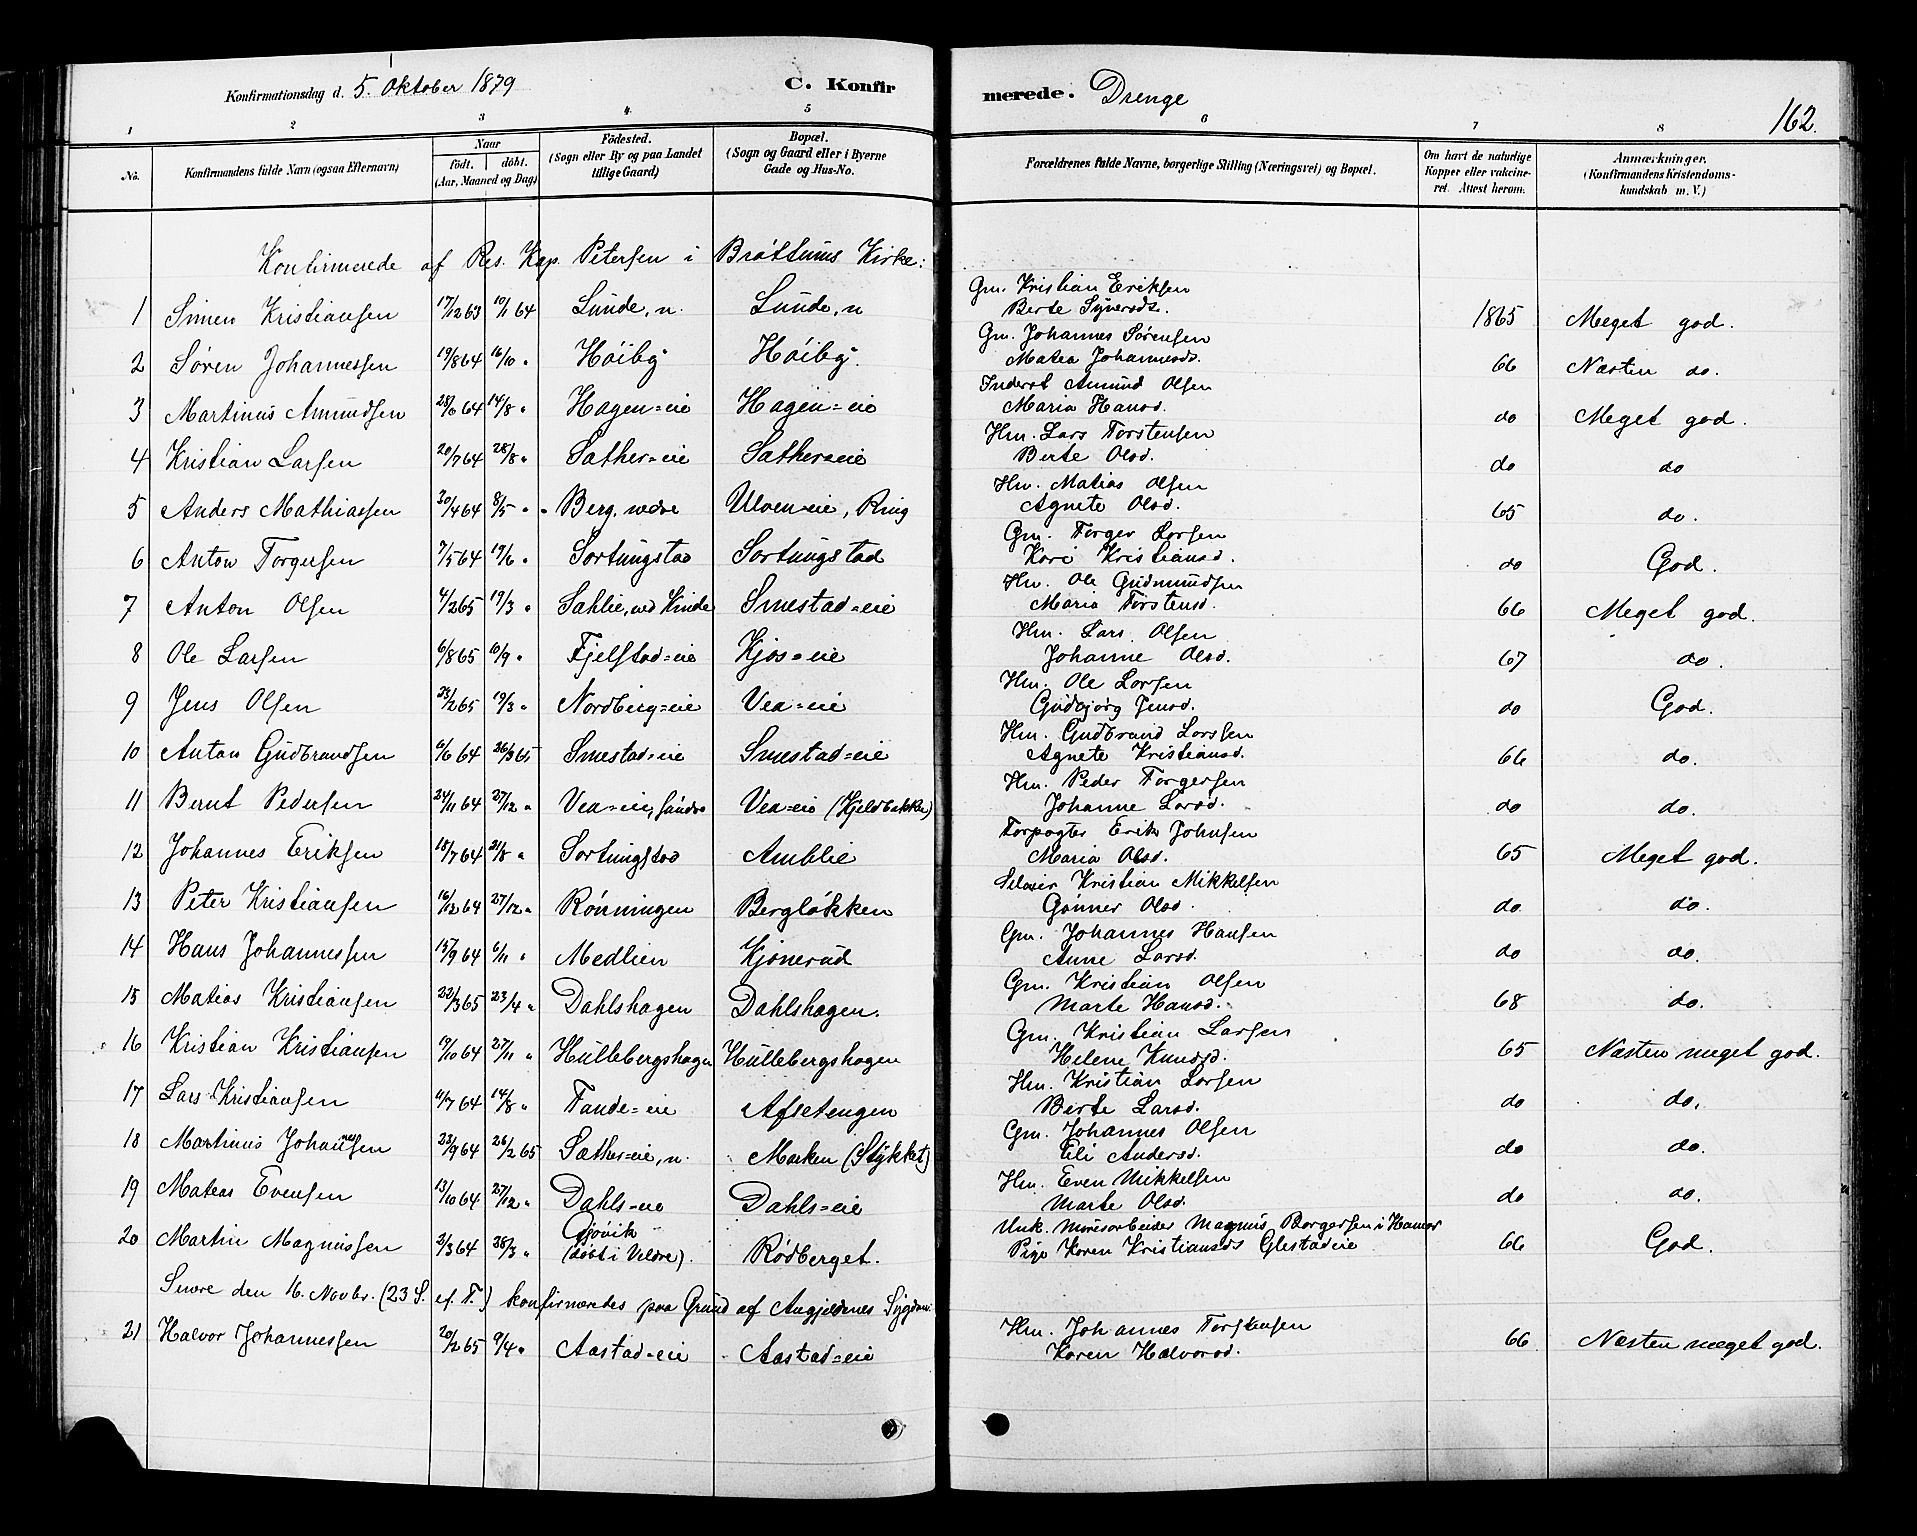 Konfirmationsdag d. 5. Oktober 1879 C. Konfirmerede. Drenge
162.
1 2 3 4. 5 6 7 8
No. Konfirmandens fulde Navn (ogsaa Efternavn) Naar födt. döbt. (Aar, Maaned og Dag) Födested. (Sogn eller By og paa Landet tillige Gaard) Bopæl. (Sogn og Gaard eller i Byerne Gade og Hus-No. Forældrenes fulde Navne, borgerlige Stilling (Næringsvei) og Bopæl. Om havt de naturlige Kopper eller vakcineret. Attest herom. Anmærkninger. (Konfirmandens Kristendomskundskab m. V.)
Konfirmerede af Res. Kap. Petersen i Brøttums Kirke:
1 Simen Kristiansen 17/12 63 10/1 64 Lunde, n. Lunde, n Gm. Kristian Eriksen 1865 Meget god.
Berte Syversds.
2 Søren Johannessen 19/8 64 16/10 " Høiby Høiby. Gm. Johannes Sørensen 66 Næsten do.
Matea Johannesd.
3 Martinus Amundsen 14/8 " Hagen=eie Hagen=eie Inderst Amund Olsen do Meget god.
Maria Hansd.
4 Kristian Larsen 20/7 64 28/8 " Sæther=eie Sæther=eie Hm. Lars Torstensen do do
Berte Olsd.
5 Anders Mathiassen 30/4 64 8/5 " " Berg, nedre Ulven=eie, Ring Hm. Matias Olsen 65 do.
Agnete Olsd.
6 Anton Torgersen 7/5 64 19/6 " Sortungstad Sortungstad Gm. Torger Larsen do God.
Kari Kristiansd.
7 Anton Olsen 4/2 65 19/3 " Sahlie, ned Smestad=eie Hm. Ole Gudmundsen 66 Meget god.
Maria Torstensd.
8 Ole Larsen 6/8 65 10/9 " Fjelstad=eie Kjos=eie Hm. Lars Olsen 67 do.
Johanne Olsd.
9 Jens Olsen 23/2 65 19/3 " Nordberg=eie Vea=eie Hm. Ole Larsen do God.
Gudbjørg Jensd.
10 Anton Gudbrandsen 64 26/3 65 Smestad=eie Smestad=eie Hm. Gudbrand Larsen 66 do.
Agnete Kristiansd.
11 Bernt Pedersen 24/11 64 27/12 " Vea=eie, søndre Vea=eie (Kjeldbakken) Hm. Peder Torgersen do do.
Johanne Larsd.
12 Johannes Eriksen 18/7 64 21/8 " Sortungstad Amblie Forpagter Erik Johnsen 65 Meget god.
Maria Olsd.
13 Peter Kristiansen 16/12 64 27/12 " Rønningen Bergløkken Selveier Kristian Mikkelsen do. do.
Gunner Olsd.
14 Hans Johannessen 15/9 64 6/11 " Medlien Kjønerud Gm. Johannes Hansen do do.
Anne Larsd.
15 Matias Kristiansen 22/3 65 23/4 " Dahlshagen Dahlshagen. Gm. Kristian Olsen 68 do.
Marte Hansd.
16 Kristian Kristiansen 19/10 64 27/11 " Hullebergshagen Hullebergshagen Gm. Kristian Larsen 65 Næsten meget god.
Helene Knudsd.
17 Lars Kristiansen 64 14/8 " Tande=eie Afsetengen Hm. Kristian Larsen do do.
Berte Larsd.
18 Martinus Johannesen 23/9 64 26/2 65 Sæther=eie, n. Marken (Stykket) Gm. Johannes Olsen do do.
Eli Andersd.
19 Matias Evensen 13/10 64 27/12 " Dahls=eie Dahls=eie Hm. Even Mikkelsen do do.
Marte Olsd.
20 Martin Magnussen 2/3 64 28/3 " Gjøvik (døbt i Veldre). Rødberget. Unk. Murarbeider Magnus Borgersen i Hamar 66 God.
Pige Karen Kristiansds Glestadeie
Senere den 16. Novbr. (23 S. ef. T.) konfirmeredes paa Grund af Angjeldenes Sygdom:
21 Halvor Johannessen 20/2 65 9/4 " Aastad=eie Aastad=eie Hm. Johannes Torstensen 66 Næsten meget god.
Karen Halvorsd.